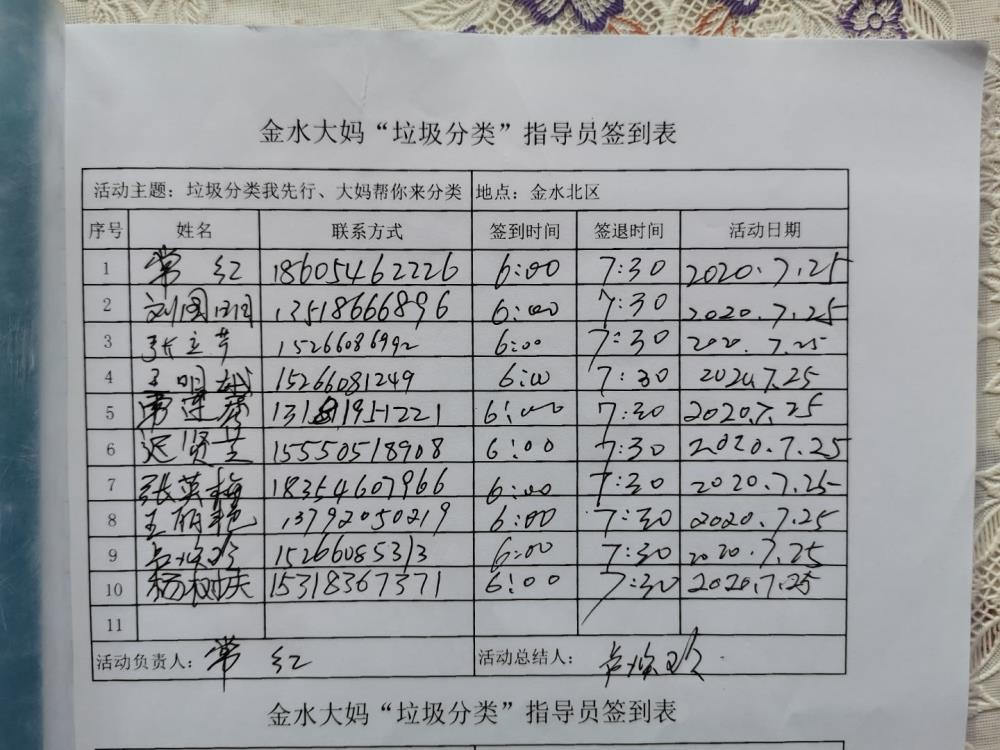 金水大妈“垃圾分类”指导员签到表
活动主题：垃圾分类我先行、大妈帮你来分类 地点：金水北区
序号 姓名 联系方式 签到时间 签退时间 活动日期
1 常红 18605462226 6:00 7:30 2020.7.25
2 刘图国 13518666896 6:00 7:30 2020.7.25
3 张立芹 15266086992 6:00 7:30 2020.7.25
4 15266081249 6:00 7:30 2020.7.25
5 6:00 7:30 2020.7.25
6 迟贤芝 15550518908 6:00 7:30 2020.7.25
7 张英梅 18354607966 6:00 7:30 2020.7.25
8 王丽艳 13792050219 6:00 7:30 2020.7.25
9 15266085313 6:00 7:30 2020.7.25
10 杨树庆 15318367371 6:00 7:30 2020.7.25
11
活动负责人：常红 活动总结人：
金水大妈“垃圾分类”指导员签到表